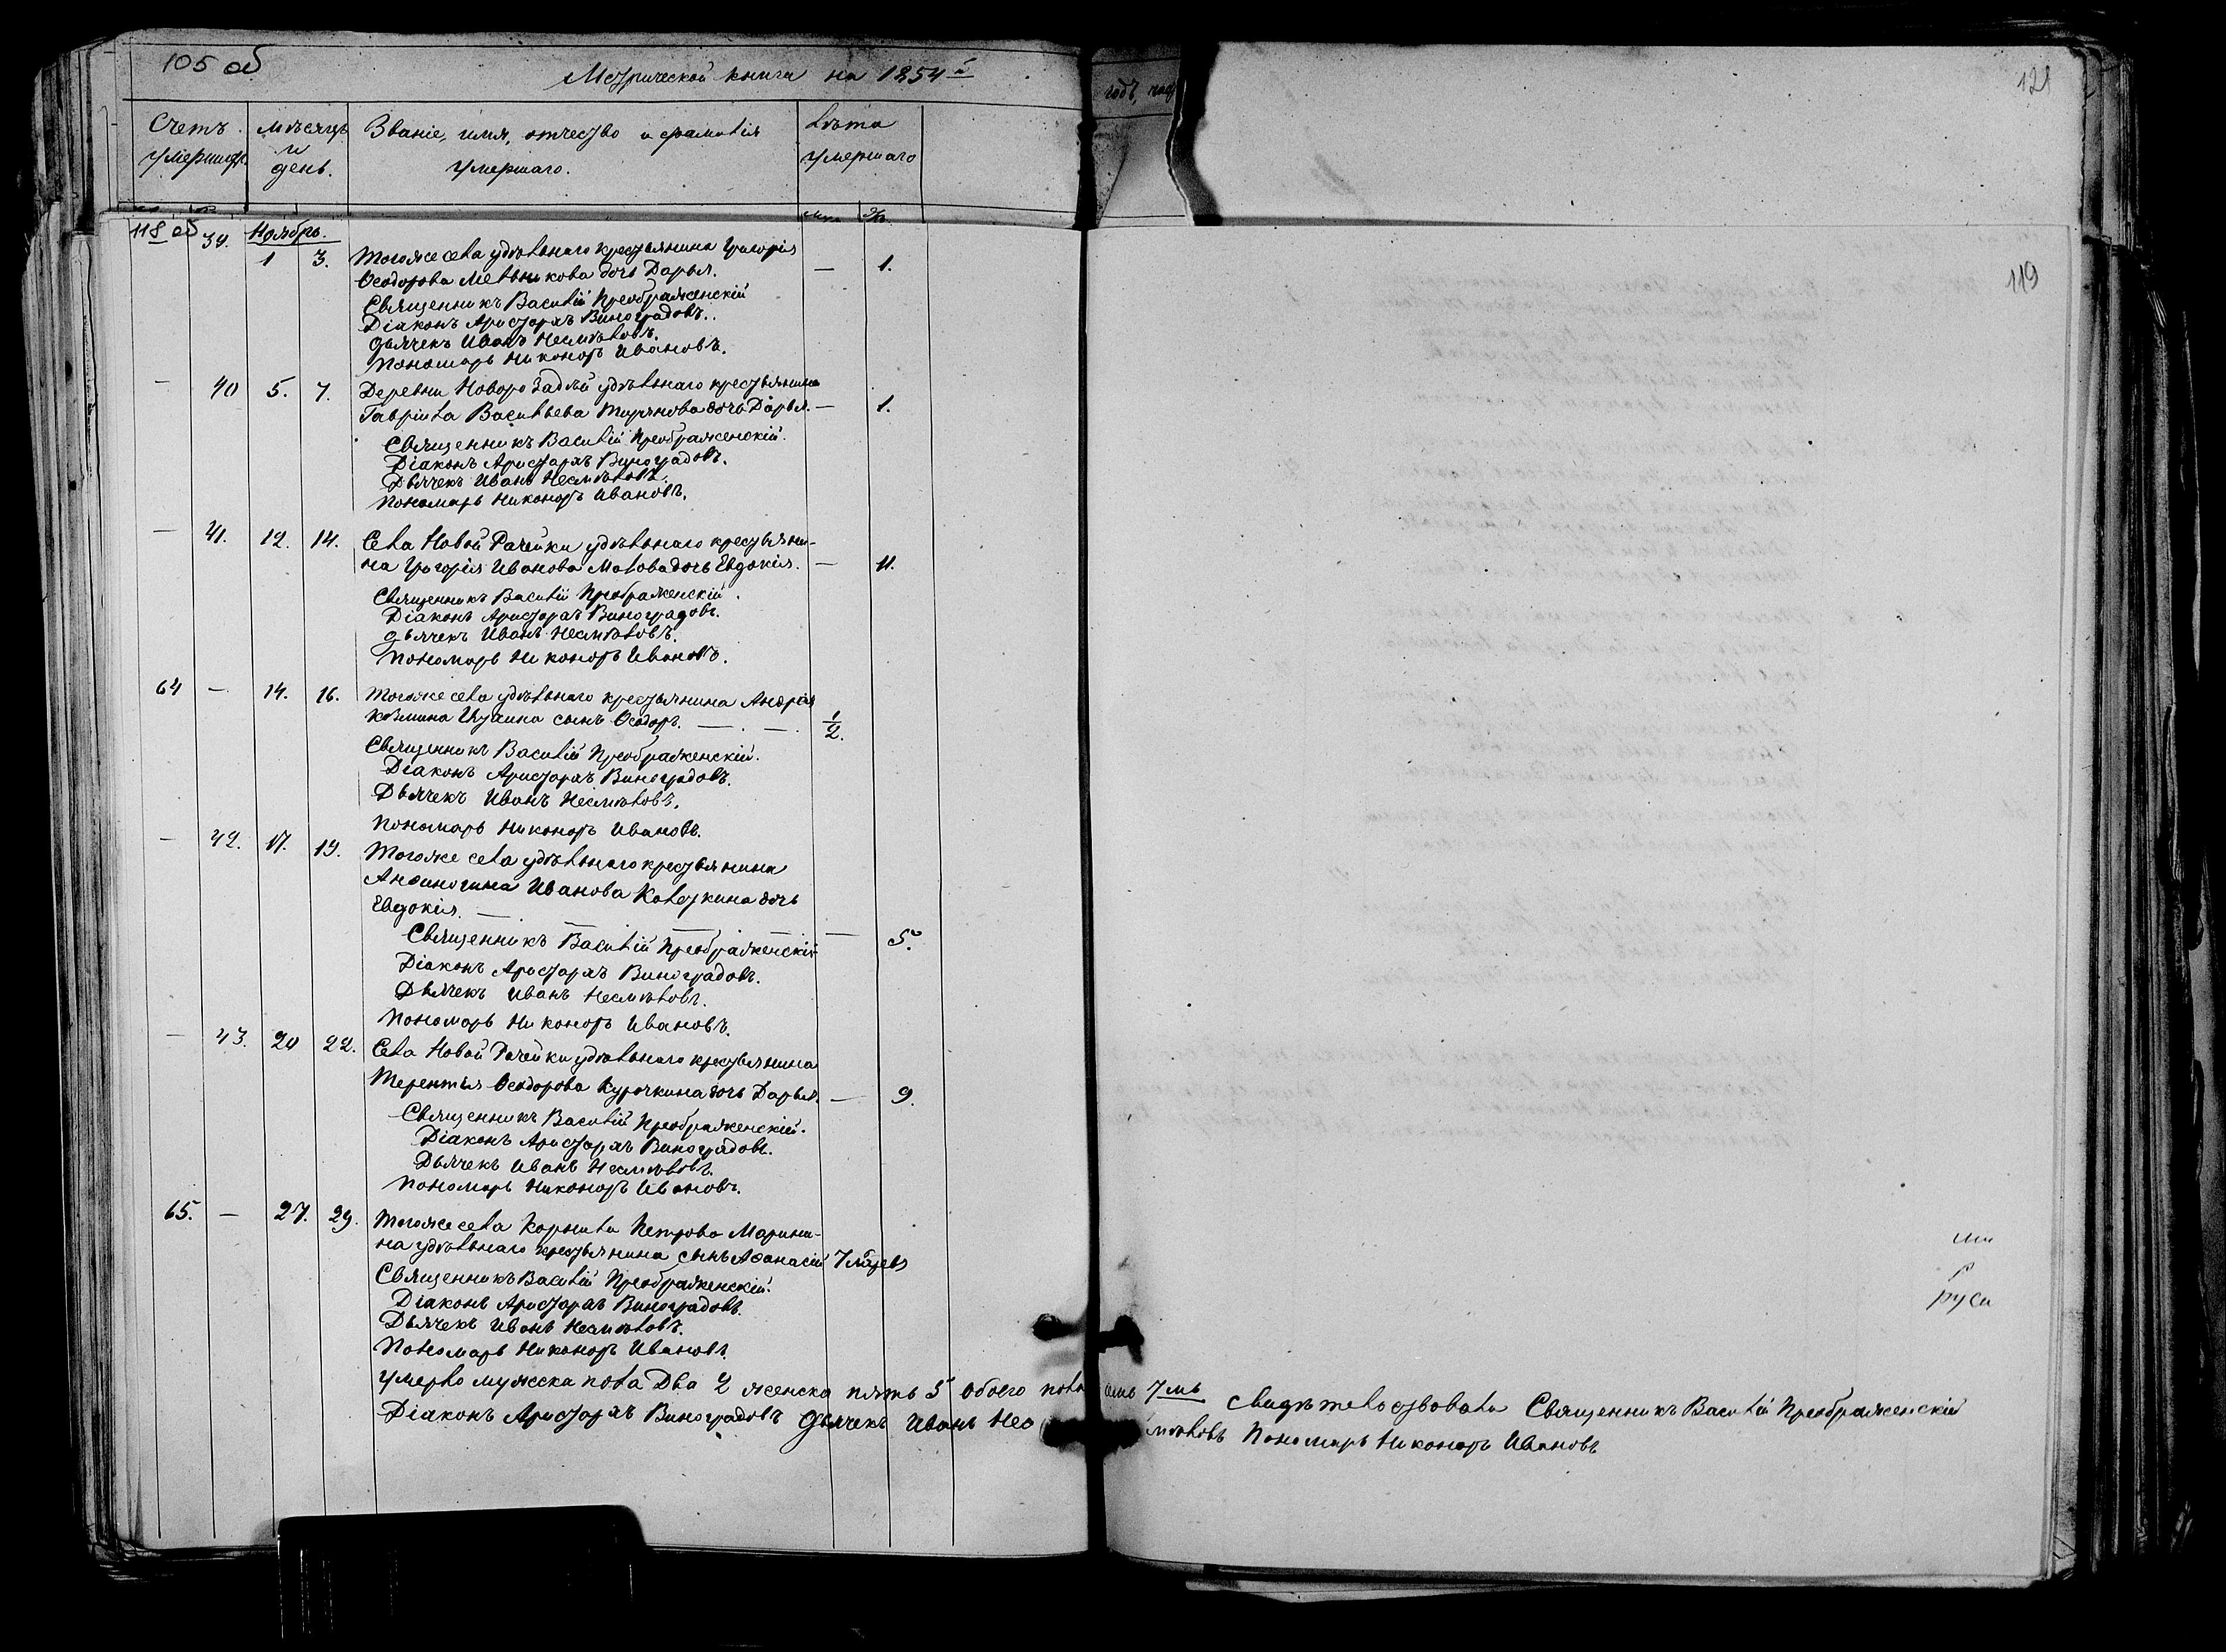 105 об
Метрической книги на 1854й
годъ, час
121
Счетъ умершихъ.
Мѣсяцъ и день.
Званіе, имя, отчество и фамилія умершаго.
Лѣта умершаго
118 об
119
39. Ноябрь.
1 3. Тогоже села удѣльнаго крестьянина Григорія
Ѳеодорова Мельникова дочь Дарья. — 1.
Священникъ Василій Преображенскій
Діаконъ Аристархъ Виноградовъ.
дьячекъ Иванъ Несмѣловъ.
Пономарь Никоноръ Ивановъ.
— 40 5. 7. Деревни удѣльнаго крестьянина
Гавріила Васильева дочь Дарья. — 1.
Священникъ Василій Преображенскій.
Діаконъ Аристархъ Виноградовъ.
Дьячекъ Иванъ Несмѣловъ.
Пономарь Никоноръ Ивановъ.
— 41. 12. 14. Села Новой Рачейки удѣльнаго крестьяни-
на Григорія Иванова Малова дочь Евдокія. — 11.
Священникъ Василій Преображенскій.
Діаконъ Аристархъ Виноградовъ.
дьячекъ Иванъ Несмѣловъ.
Пономарь Никоноръ Ивановъ.
64 — 14. 16. Тогоже села удѣльнаго крестьянина Андрея
Козмина сынъ Ѳеодоръ. — . — . 1/2.
Священникъ Василій Преображенскій.
Діаконъ Аристархъ Виноградовъ.
Дьячекъ Иванъ Несмѣловъ.
Пономарь Никоноръ Ивановъ.
— 42. 17. 19. Тогоже села удѣльнаго крестьянина
Анѳиногина Иванова дочь
Евдокія. — — — — — 5.
Священникъ Василій Преображенскій
Діаконъ Аристархъ Виноградовъ.
Дьячекъ Иванъ Несмѣловъ.
Пономарь Никоноръ Ивановъ.
— 43. 20 22. Села Новой Рачейки удѣльнаго крестьянина
Терентія Ѳеодорова Курочкина дочь Дарья. — 9.
Священникъ Василій Преображенскій.
Діаконъ Аристархъ Виноградовъ.
Дьячекъ Иванъ Несмѣловъ.
Пономарь Никоноръ Ивановъ.
65. — 27. 29. Тогоже села Корнила Петрова Марини-
на удѣльнаго крестьянина сынъ Аѳанасій 7 мѣсяцевъ
Священникъ Василій Преображенскій.
Діаконъ Аристархъ Виноградовъ.
Дьячекъ Иванъ Несмѣловъ.
Пономарь Никоноръ Ивановъ.
умерло мужеска пола Два 2 женска пять 5 обоего пола семь 7мь Свидѣтельствовали Священникъ Василій Преображенскій
Діаконъ Аристархъ Виноградовъ Дьячекъ Иванъ Несмѣловъ Пономарь Никоноръ Ивановъ